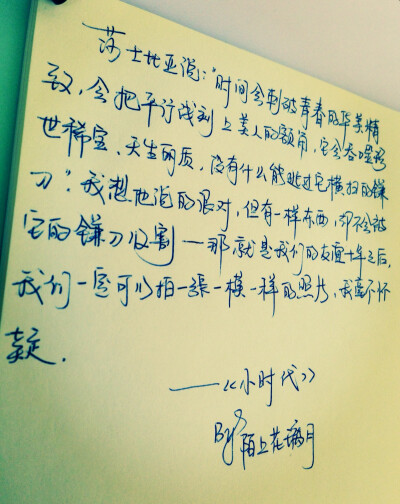 莎士比亚说:"时间会刺破青春的华美精
致,会把平行线刻上美人的额角,它会吞噬稀
世珍宝、天生丽质,没有什么能逃过它横扫的镰
刀".我想他说的很对,但有一样东西,却不会被
它的镰刀收割——那就是我们的友谊十年之后,
我们一定可以拍一張一模一样的照片,我毫不怀
疑.
——《小时代》
By 陌上花 月